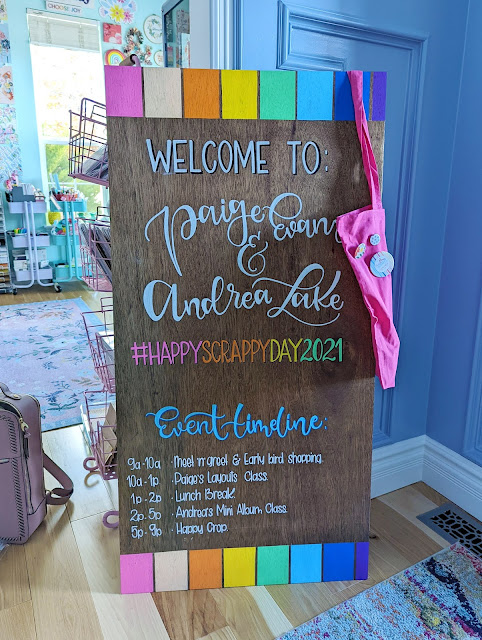 CHOOSE JOY
WELCOME TO:
Paige Evans
&
Andrea Lake
#HAPPYSCRAPPYDAY2021
Event timeline:
9a-10a • Meet n' greet & Early bird shopping.
10a-1p • Paige's Layouts Class.
1p-2p • Lunch Break!
2p-5p • Andrea's Mini Album Class.
5p-9p • Happy Crop.